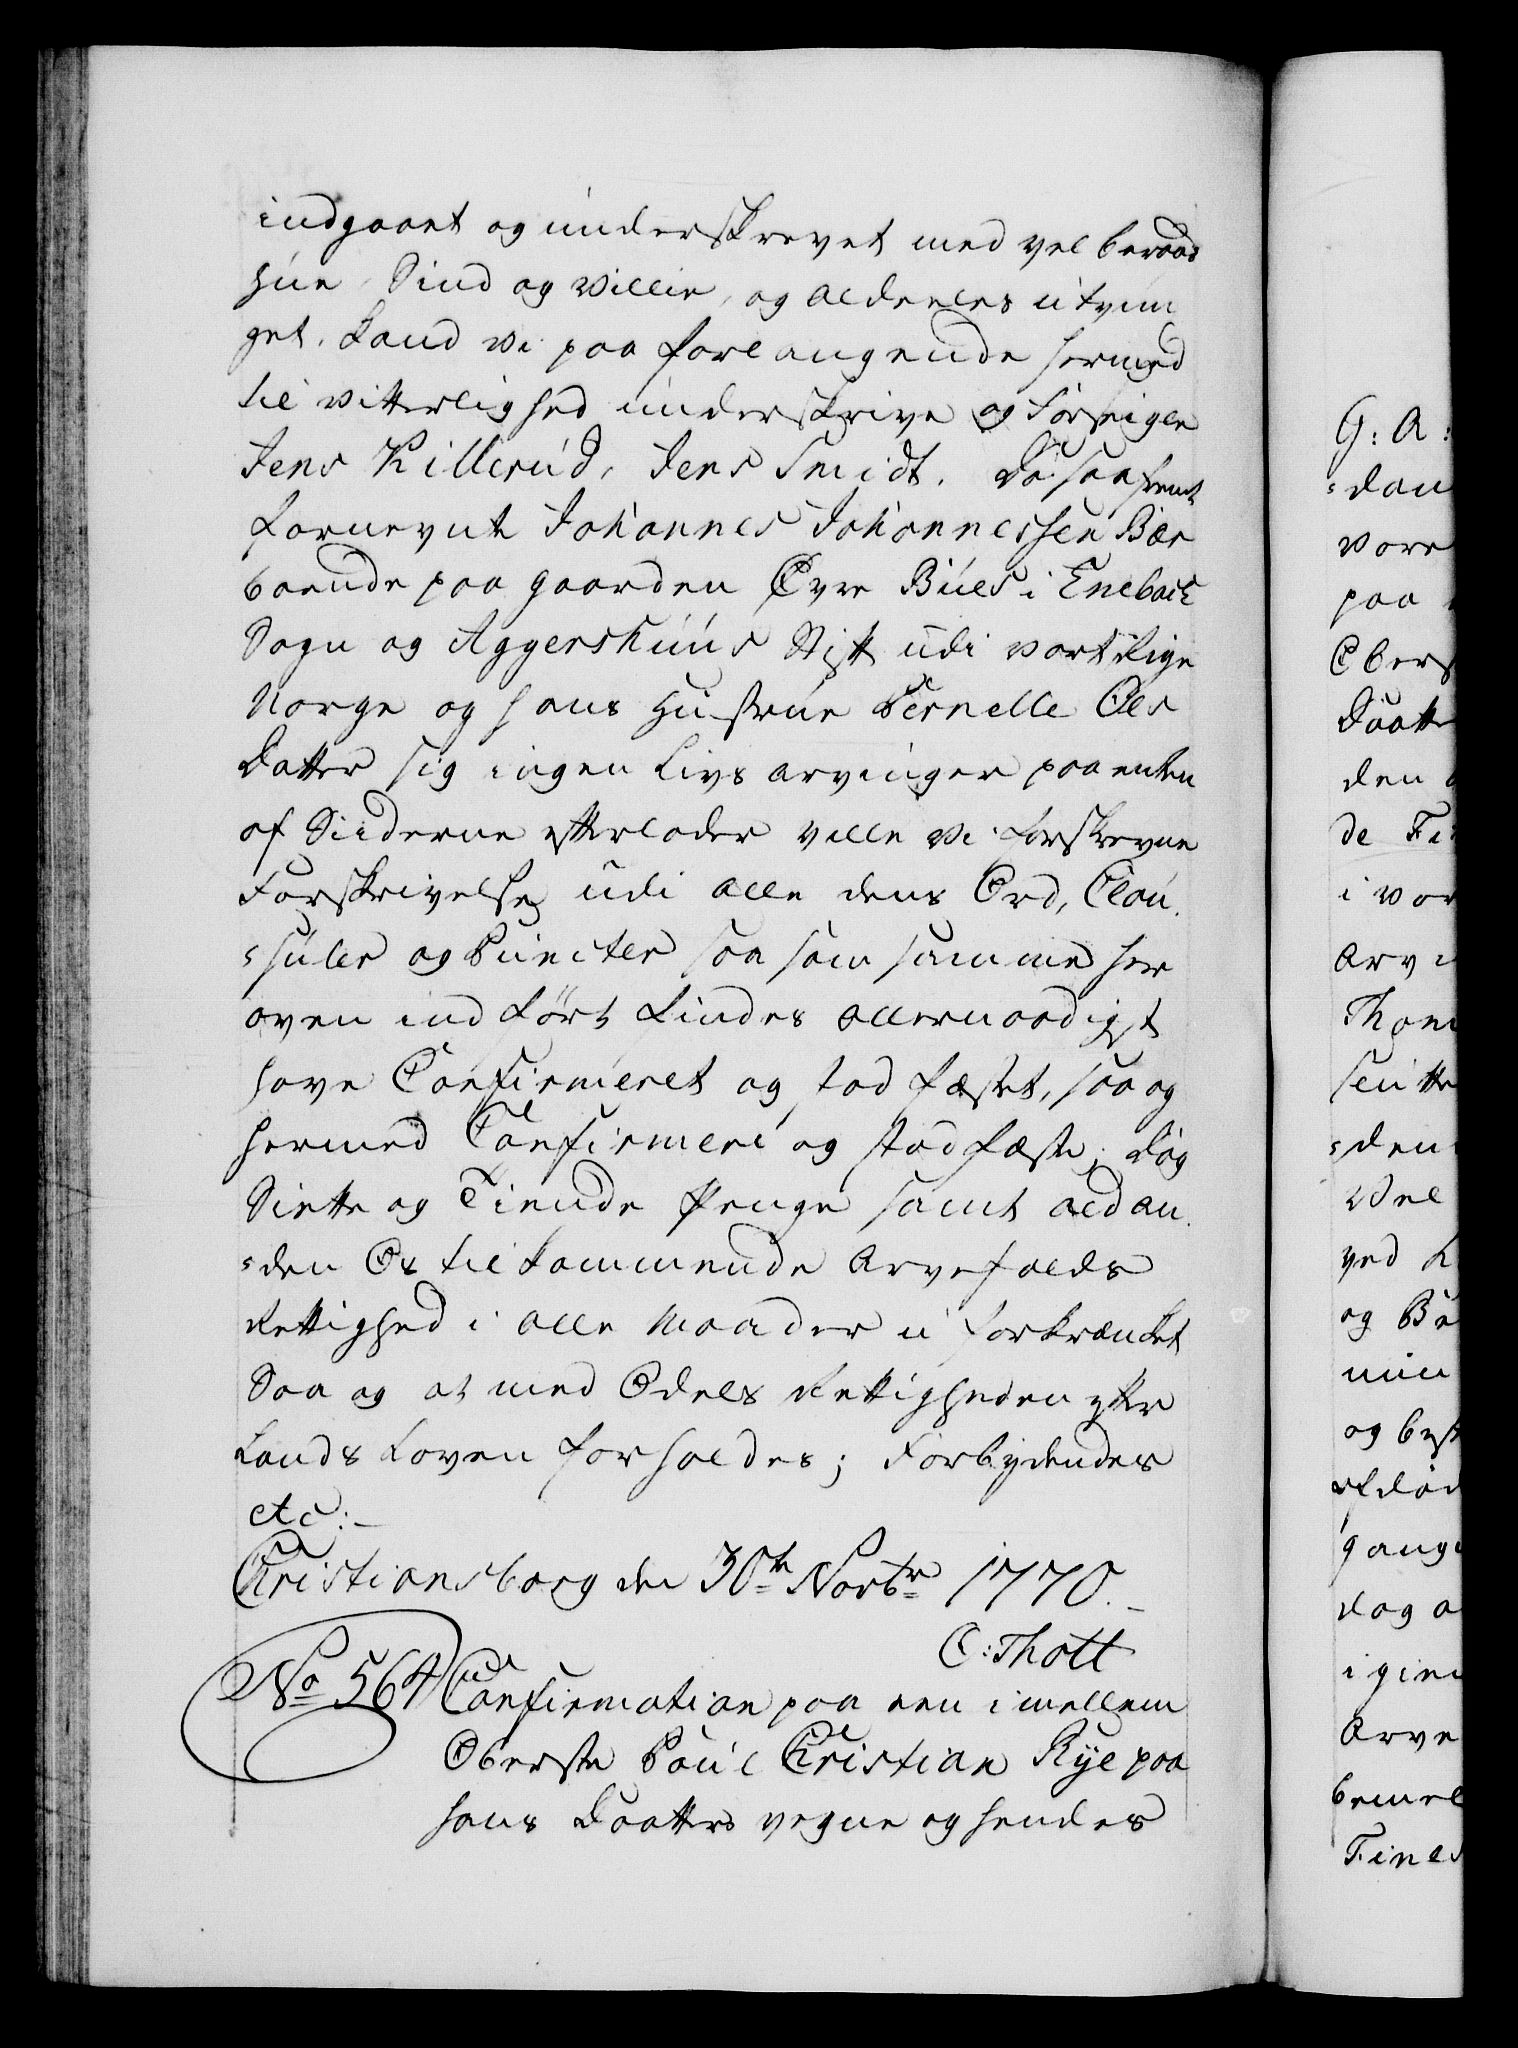 indgaaet og underskrevet med vel beraad
hue, Sind og Villie, og aldeeles utvun
get. Kand vi paa forlangende hermed
til vitterlighed underskrive og forseigle
Jens Killerud, Jens Smidt. Da saafremt
fornevnte Johannes Johannessen Bær
boende paa gaarden Øvre Bues i Enebach
Sogn og Aggershuus Stift udi vort Rige
Norge og hans Hustrue Pernelle Ols
Datter sig ingen Livs arvinger paa enten
af Siiderne efterlader ville vi forskrevne
Forskrivelse udi alle dens Ord, Clau
=suler og Puncter saa som samme her
oven ind ført findes allernaadigst
have Confirmeret og stadfæstet, saa og
hermed Confirmere og stadfæste; dog
Siette og Tiende Penge samt ald an
=den Os tilkommende Arvefalds
Rettighed i alle Maader u forkrænket
Saa og at med Odels Rettigheden efter
Lands Loven forholdes; Forbydendes
etc:
Christiansborg den 30te Novbr 1770.
O: Thott
No 564 Confirmation paa een imellem
Oberste Poul Christian Rye paa
hans Daatters vegne og hendes
G: A:
=dan
vore
paa
Obers
Daatte
den
de Fi
i vor
Arvi
Thom
sen
=den
Vel
ved
og Be
min
og best
afdød
gang
dog a
igien
Arve
bemel
Fines